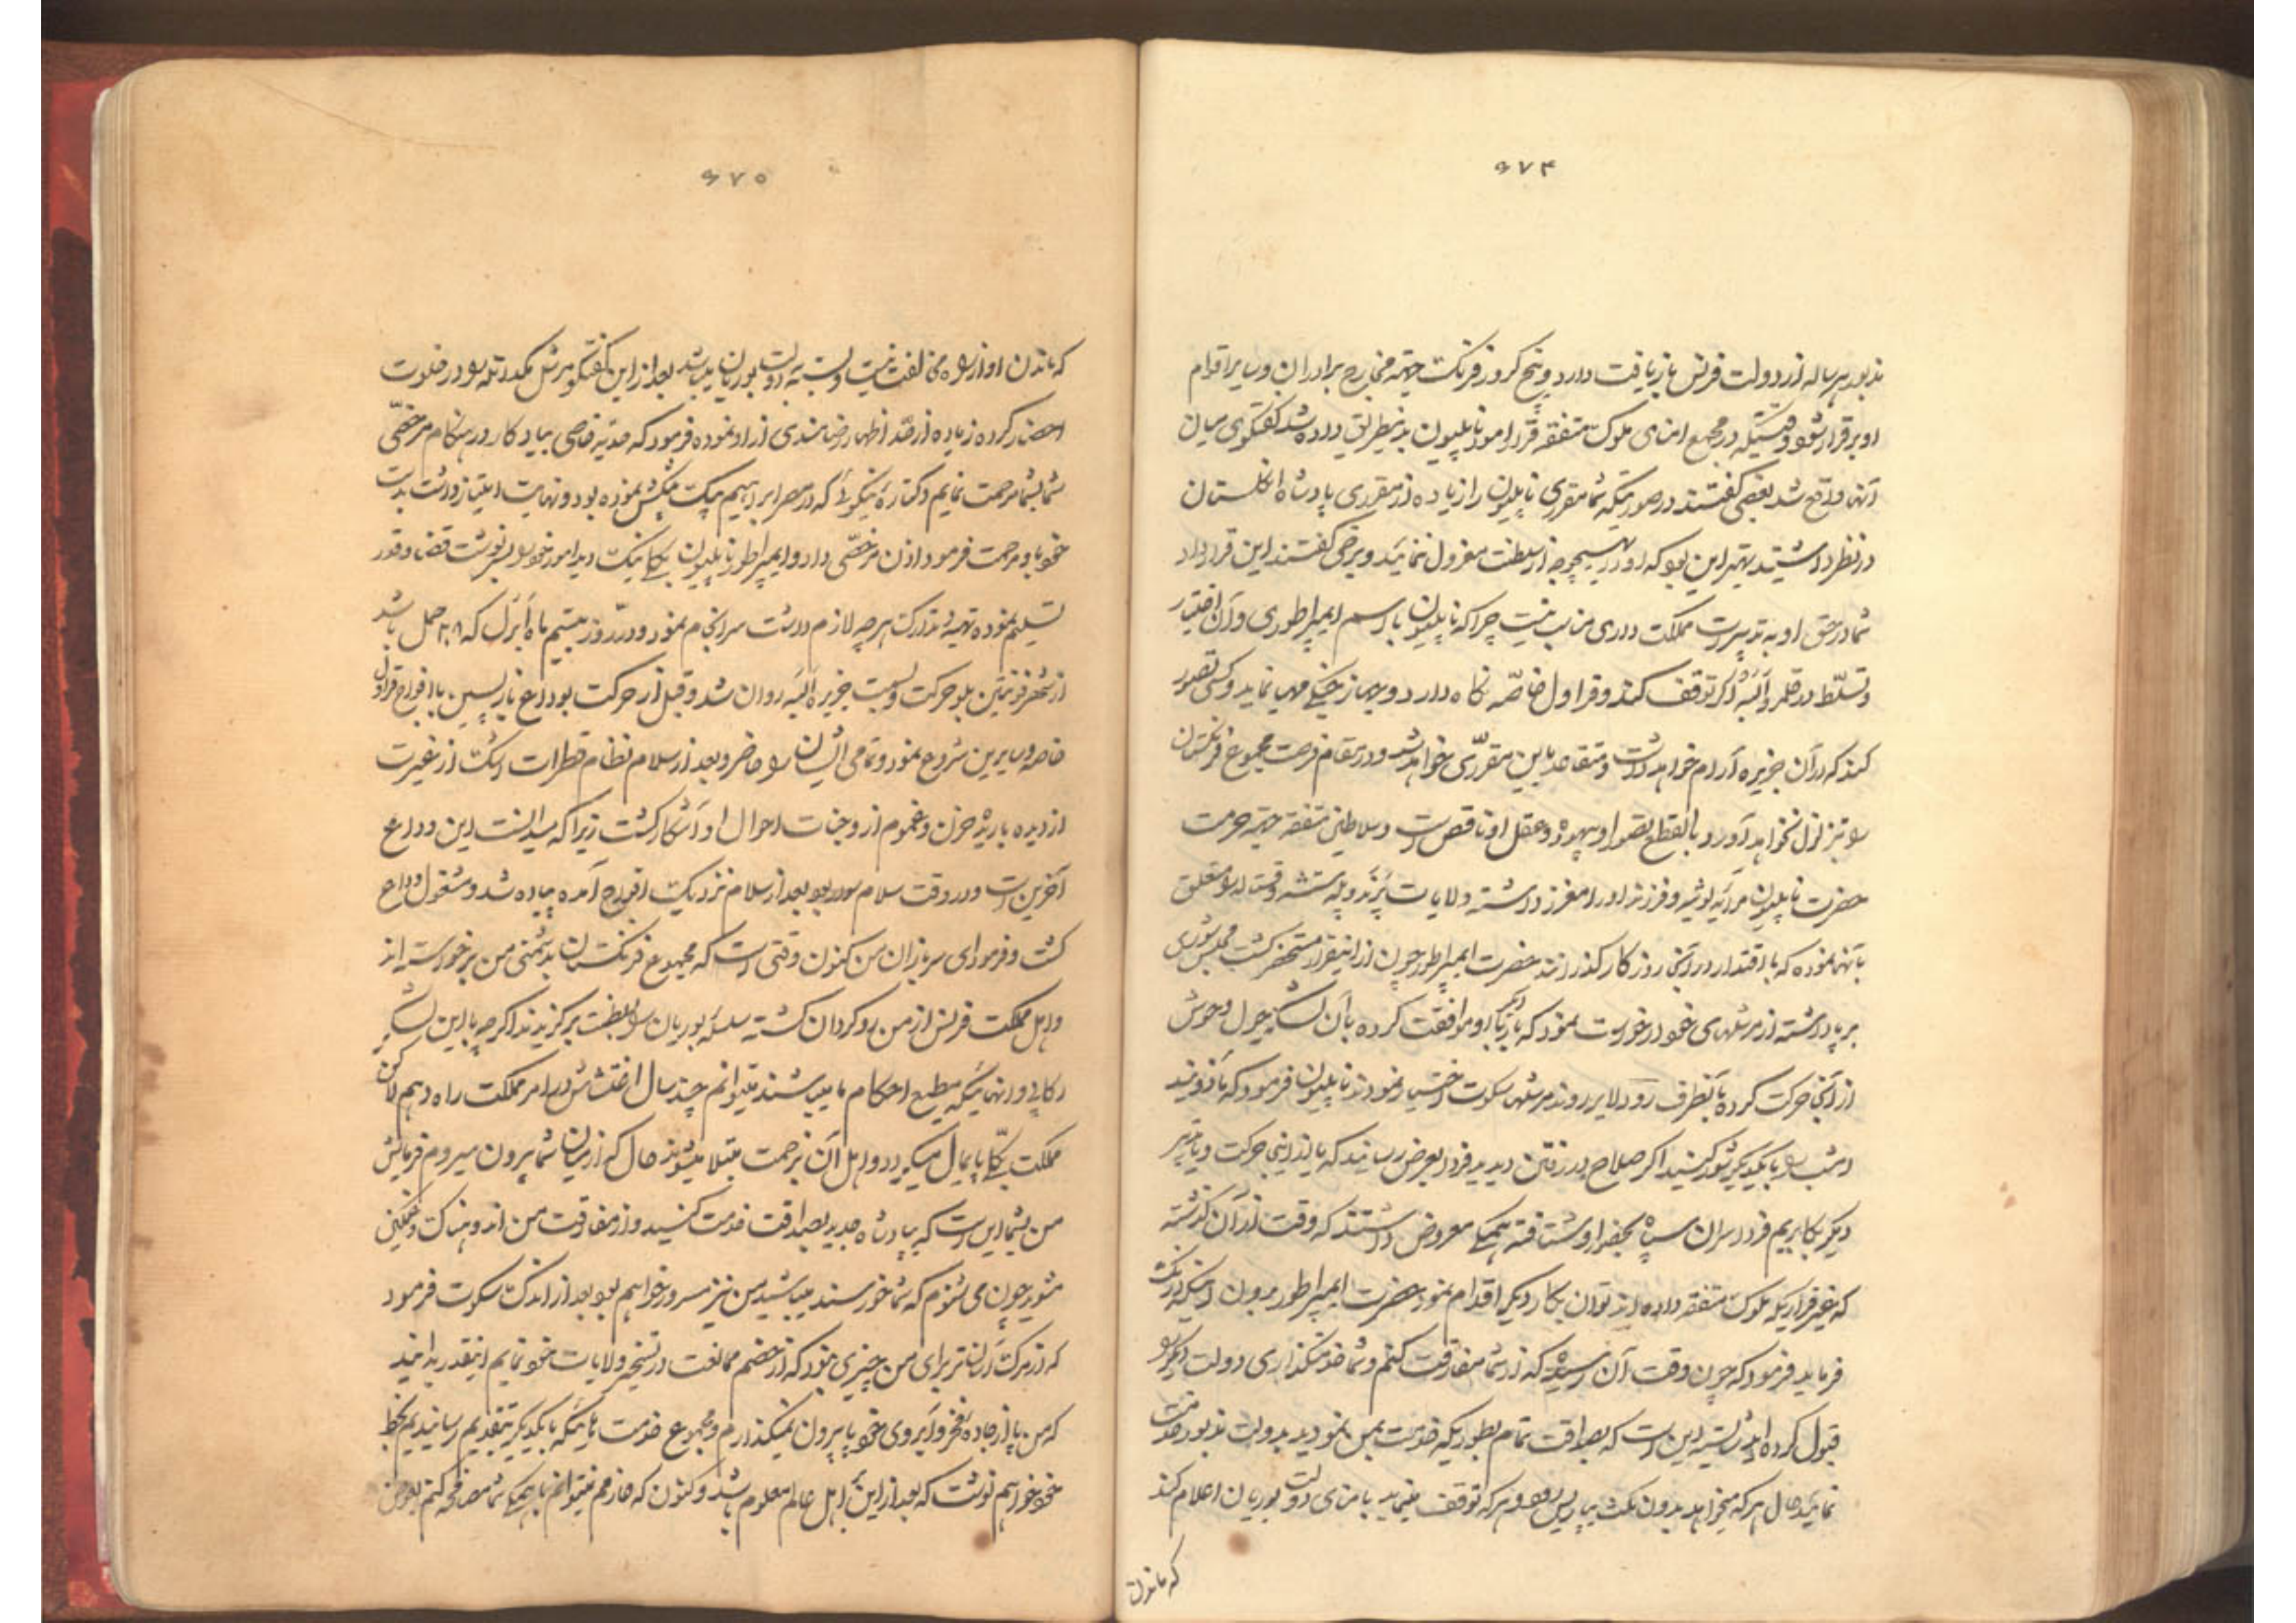 ۶۷۴
مذبور هر ساله از دولت فرنس بازیافت دارد و پنج کرور فرنک جهته مخارج برادران و سایر اقوام
او برقرار شود وقتیکه در مجمع امنای ملوک متفقه قرار امور ناپلیون بدینطریق داده شد گفتگوی میان
آنها واقع شد بعضی گفتند در صورتیکه شما مقرری ناپلیون را زیاده از مقرری پادشاه انگلستان
در نظر داشتید بهتر این بود که او را بهیچوجه از سلطنت معزول ننمائید و برخی گفتند این قرارداد
شما در حق او به تدبیرات مملکت داری مناسب نیست چرا که ناپلیون با اسم ایمپراطوری و آن اختیار
و تسلط در قلمرو آلبه اگر توقف کند و قراول خاصه نگاه دارد و جهاز جنگی مهیا نماید و کسی تصور
کند که در آن جزیره آرام خواهد داشت و متقاعد باین مقرری خواهد شد و در مقام فرصت مجموع فرنگستان
را بتزلزل نخواهد آورد بالقطع تصور او بیهوده و عقل او ناقص است و سلاطین متفقه جهته حرمت
حضرت ناپلیون مرایه لوئیه و فرزند او را معزز داشته ولایات پرنه و پله سنشه و را متعلق
بآنها نموده که با اقتدار در آنجا روزگار گذرانند حضرت ایمپراطور چون از اینقرار مستحضر گشت مجلس شوری
بر پا داشته از مرشلهای خود درخواست نمود که بار دیگر با او موافقت کرده بآن لشکر جول و حوش
از آنجا حرکت کرده بآنطرف رود لایر روند مرشلها سکوت اختیار نمودند ناپلیون فرمود که ماذونید
امشب را با یکدیگر شور کنید اگر صلاح در رفتن دیدید فردا بعرض رسانید که یا از اینجا حرکت و یا تدبیر
دیگر بکار بریم فردا سران سپاه بحضور او شتافته همگی معروض داشتند که وقت از آن گذشته
که بغیر قراریکه ملوک متفقه داده اند توان بکار دیگر اقدام نمود حضرت ایمپراطور بدون اینکه درنک
فرماید فرمود که چون وقت آن رسیده که از شما مفارقت کنم و شما خدمتگذاری دولت دیگر را
قبول کرده اید شایسته این است که بصداقت تمام بطوریکه خدمت بمن نمودید بدولت مذبور خدمت
نمائید حال هر که میخواهد بدون مکث بپاریس رود و هر که توقف مینماید بامنای دولت بوربان اعلام کند
که ماندن
۶۷۵
که ماندن او از راه مخالفت نیست و بسته بدولت بوربان میباشد بعد از این گفتگو مرشل مکدانله را در خلوت
احضار کرده زیاده از حد اظهار رضامندی از او نموده فرمود که هدیه خاصی بیادگار در هنگام مرخصی
شما بشما مرحمت نمایم و کتاره نیکوئی که در مصر ابراهیم بیک پیشکش نموده بود و نهایت امتیاز داشت بدست
خود باو مرحمت فرمود و اذن مرخصی داد و ایمپراطور ناپلیون یکایک دید امور خود را بسرنوشت قضا و قدر
تسلیم نموده تهیه و تدارک هر چه لازم داشت سرانجام نمود و در روز بیستم ماه آپرل که ۳۰ حمل باشد
از شهر فونتین بلو حرکت و بسمت جزیره آلبه روان شد و قبل از حرکت بوداع بازپسین با افواج قراول
خاصه و سایرین شروع نمود و تمامی ایشان را حاضر و بعد از سلام نظام قطرات اشک از غیرت
از دیده باریده حزن و غموم از وجنات احوال او آشکار گشت زیرا که میدانست این وداع
آخرین است و در وقت سلام سواره بود بعد از سلام نزدیک افواج آمده پیاده شد و مشغول وداع
گشت و فرمود ای سربازان من کنون وقتی است که مجموع فرنگستان بدشمنی من برخواسته اند
و اهل مملکت فرنس از من روگردان گشته سلسله بوربان را بسلطنت برگزیدند اگر چه با این لشکر
رکابی و آنهائیکه مطیع احکام ما میباشند میتوانم چند سال اغتشاش در امر مملکت راه دهم لاکن
مملکت بکلی پایمال میگردد و اهل آن بزحمت مبتلا میشوند حال که از میان شما بیرون میروم فرمایش
من بشما این است که بپادشاه جدید بصداقت خدمت کنید و از مفارقت من اندوهناک و غمگین
مشوید چون می شنوم که شما خورسند میباشید من نیز مسرور خواهم بود بعد از اندک سکوت فرمود
که از مرگ آسان تر برای من چیزی نبود که از خصم ممانعت در تسخیر ولایات خود نمایم اینقدر بدانید
که من پا از جاده فخر و آبروی خود بیرون نمیگذارم و مجموع خدمت هائیکه با یکدیگر بتقدیم رسانیدیم بخط
خود خواهم نوشت که بعد از این باهل عالم معلوم باشد و کنون که عازمم نمیتوانم با همگی شما مصافحه کنم بعوض